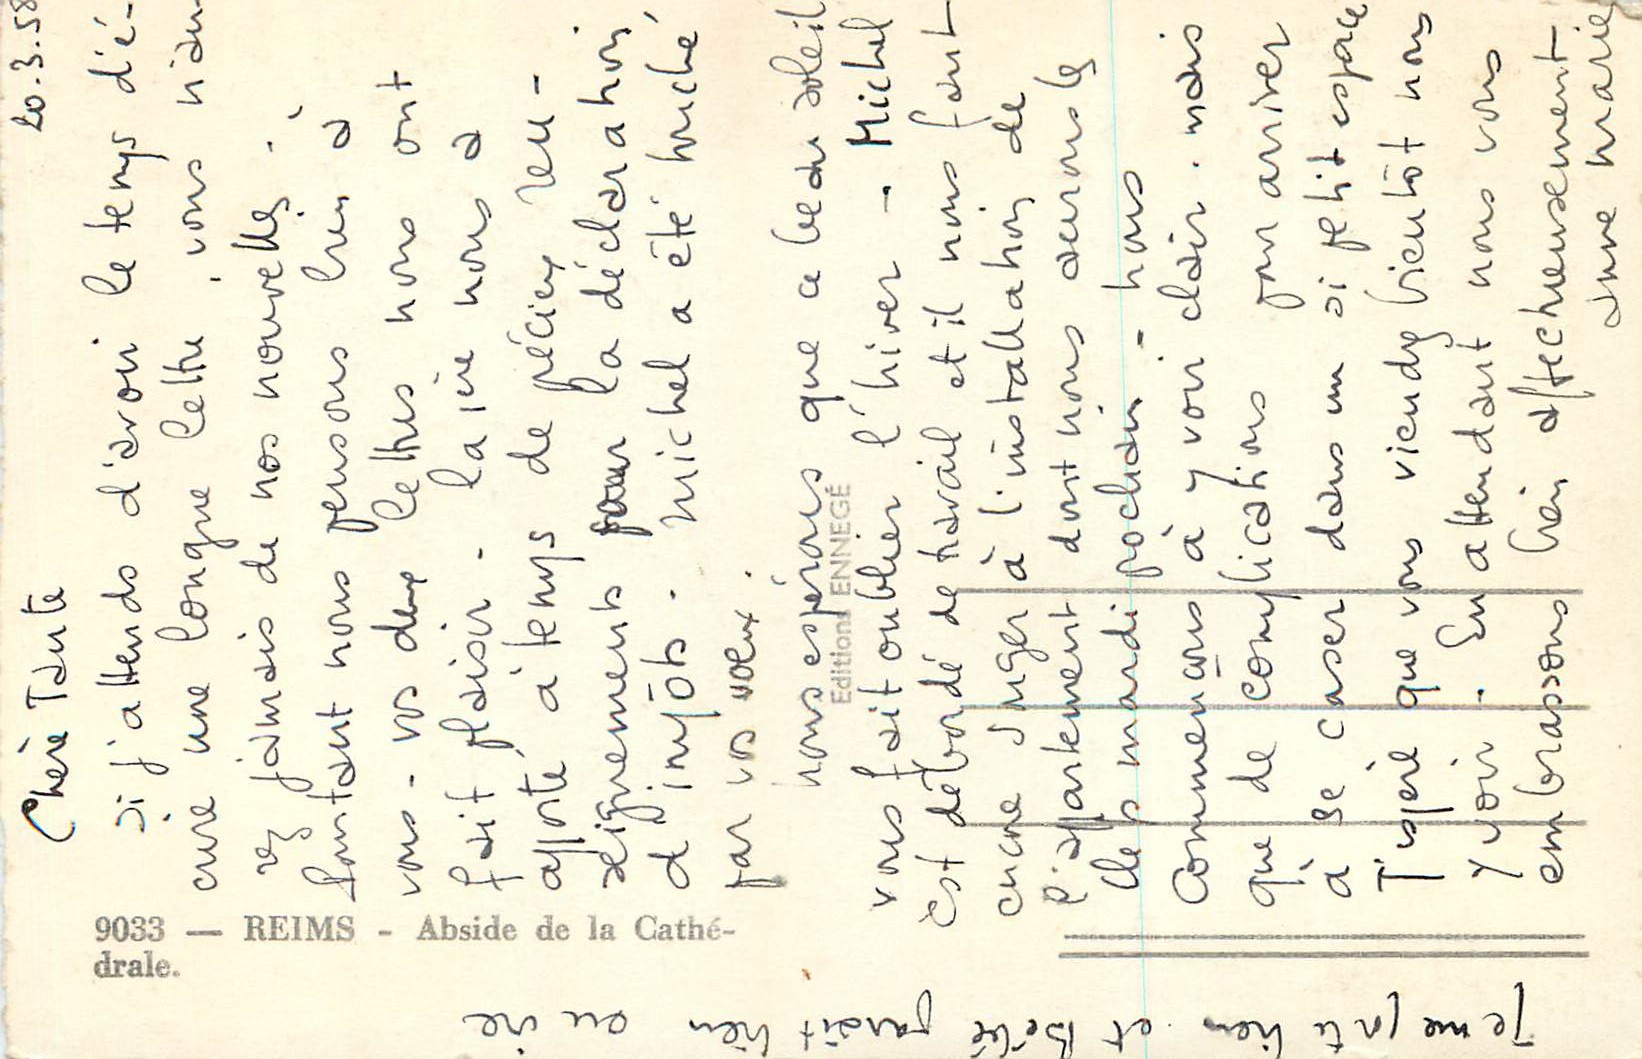 20.3.58
Chère Tante
si j'attends d'avoir le temps d'é-
crire une longue lettre, vous n'au-
rez jamais de nos nouvelles.
Pourtant nous pensons bien à
vous. vos deux lettres nous ont
fait plaisir. la 1ère nous a
apporté à temps de précieux ren-
seignements pour la déclaration
d'impôts. Michel a été touché
par vos voeux.
nous espérons que ce beau soleil
vous fait oublier l'hiver - Michel
est débordé de travail et il nous faut
encore songer à l'installation de
l'appartement dont nous aurons les
clés mardi prochain - nous
Commençons à y voir clair. mais
que de complications pour arriver
à se caser dans un si petit espace
J'espère que vous viendrez bientôt nous
y voir. En attendant nous vous
embrassons bien affectueusement
Anne Marie
Je me porte bien et Bébé paraît bien
en vie
Editions ENNEGÉ
9033 — REIMS - Abside de la Cathé-
drale.